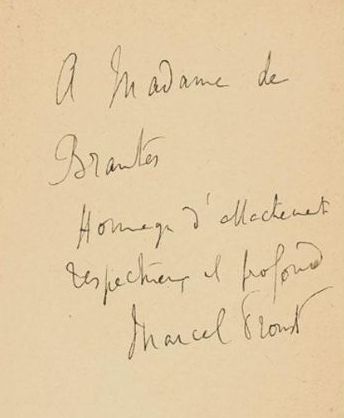 A Madame de
Brantes
Hommage d'attachement
respectueux et profond
Marcel Proust